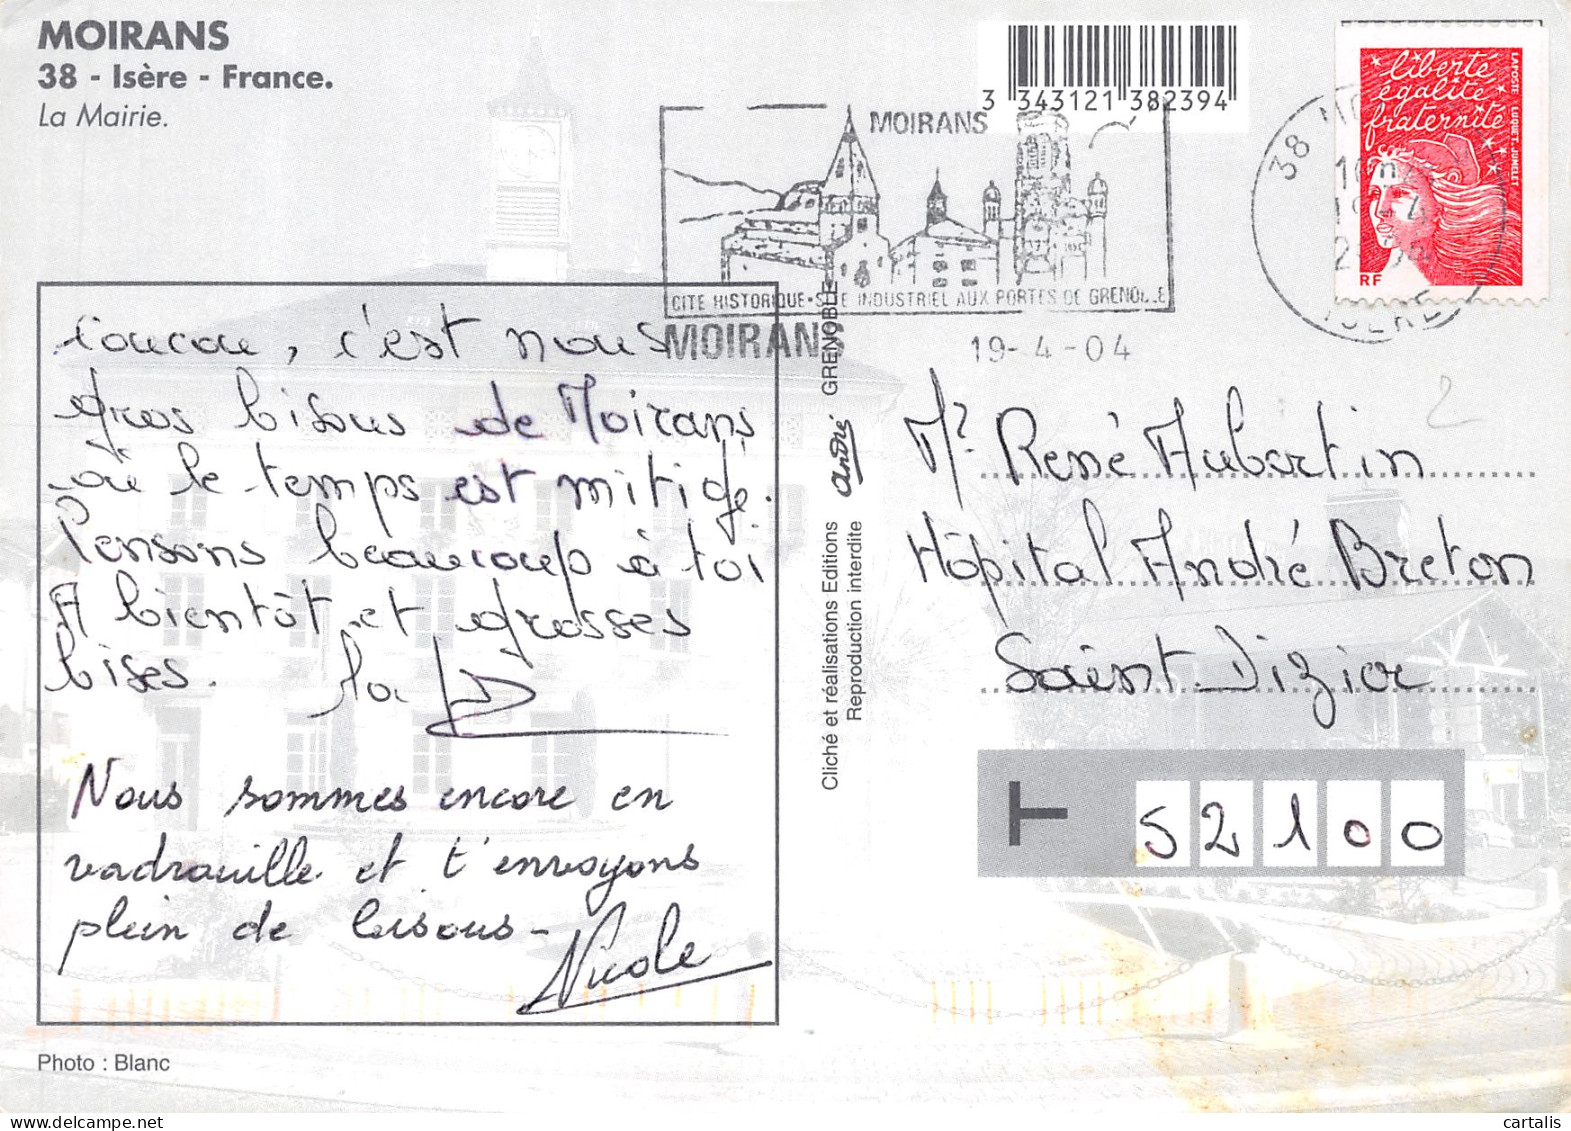 MOIRANS
38 - Isère - France.
La Mairie.
3 343121 382394
MOIRANS
CITE HISTORIQUE • SITE INDUSTRIEL AUX PORTES DE GRENOBLE
MOIRANS
19-4-04
38
ISERE
liberté
égalité
fraternité
RF
LA POSTE LUQUET-JUMELET
2
Coucou, c'est nous
gros bisous de Moirans
où le temps est mitigé.
Pensons beaucoup à toi
A bientôt et grosses
bises.
Nous sommes encore en
vadrouille et t'envoyons
plein de bisous -
Nicole
Cliché et réalisations Editions André GRENOBLE
Reproduction interdite
Mr René Aubertin
Hôpital André Breton
Saint-Dizier
T 52100
Photo : Blanc
cartalis